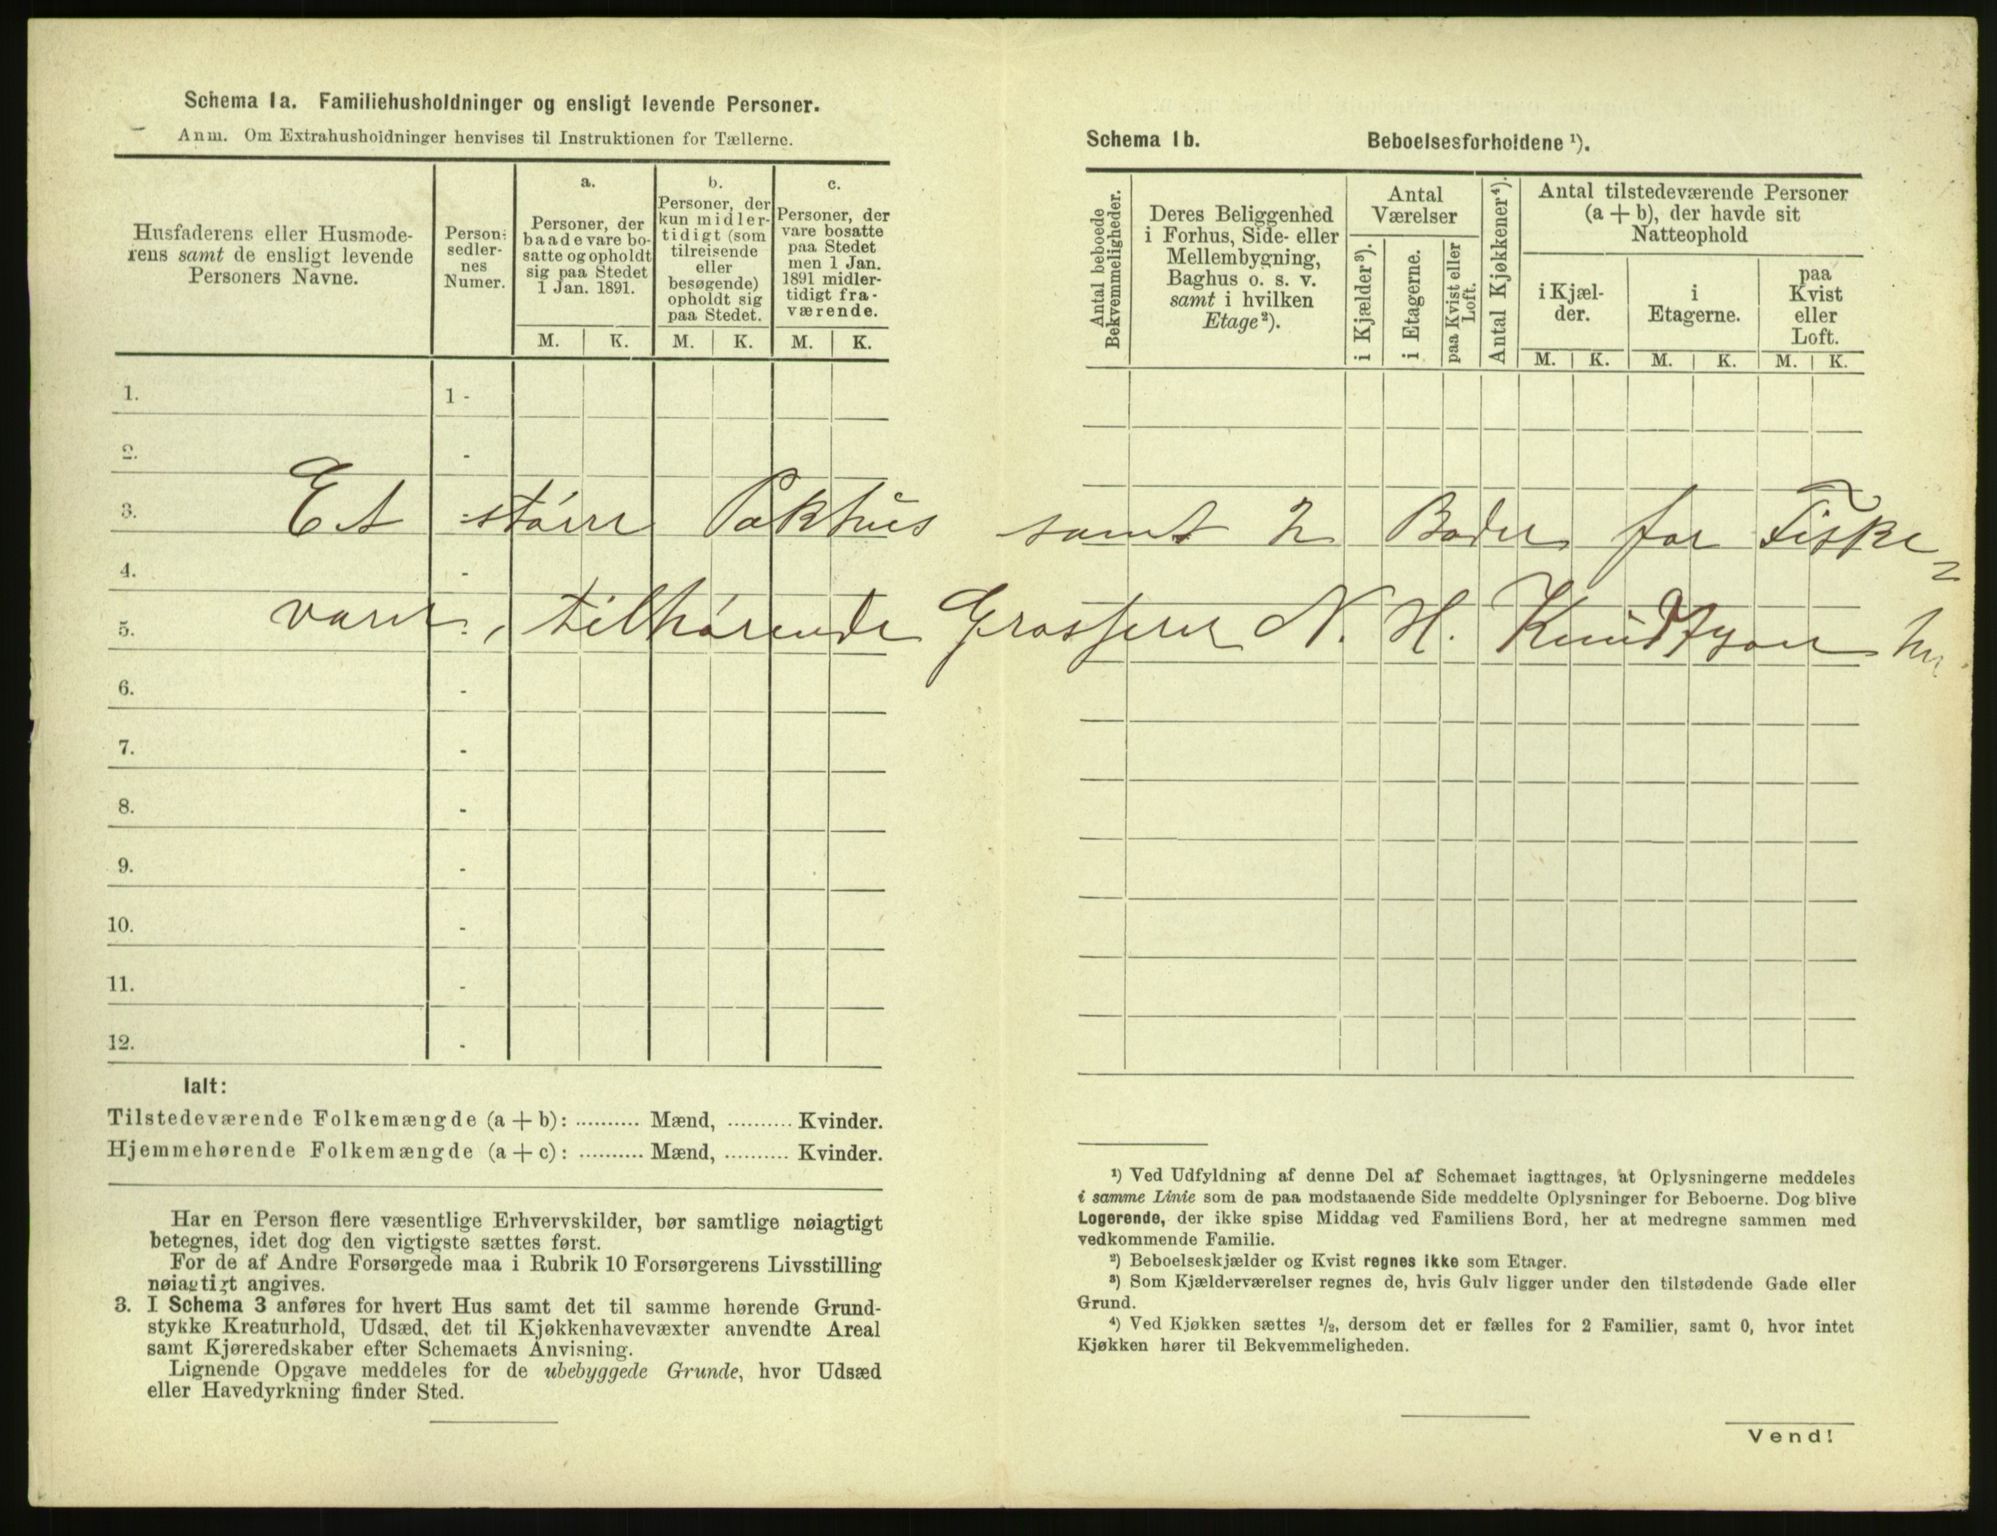 Schema 1a. Familiehusholdninger og ensligt levende Personer.
Anm. Om Extrahusholdninger henvises til Instruktionen for Tællerne.
Husfaderens eller Husmode-
rens samt de ensligt levende
Personers Navne.
Person-
sedler-
nes
Numer.
a.
Personer, der
baade vare bo-
satte og opholdt
sig paa Stedet
1 Jan. 1891.
b.
Personer, der
kun midler-
tidigt (som
tilreisende
eller
besøgende)
opholdt sig
paa Stedet.
c.
Personer, der
vare bosatte
paa Stedet
men 1 Jan.
1891 midler-
tidigt fra-
værende.
M. K. M. K. M. K.
1. 1 -
2. -
3.
4. -
5.
6. -
7. -
8. -
9. -
10. -
11. -
12. -
Et større Pakhus samt 2 Boder for Fiske=
varer, tilhørende Grosserer N. H. Knudtzon
Ialt:
Tilstedeværende Folkemængde (a + b): .......... Mænd, .......... Kvinder.
Hjemmehørende Folkemængde (a + c): .......... Mænd, .......... Kvinder.
Har en Person flere væsentlige Erhvervskilder, bør samtlige nøiagtigt
betegnes, idet dog den vigtigste sættes først.
For de af Andre Forsørgede maa i Rubrik 10 Forsørgerens Livsstilling
nøiagtigt angives.
3. I Schema 3 anføres for hvert Hus samt det til samme hørende Grund-
stykke Kreaturhold, Udsæd, det til Kjøkkenhavevæxter anvendte Areal
samt Kjøreredskaber efter Schemaets Anvisning.
Lignende Opgave meddeles for de ubebyggede Grunde, hvor Udsæd
eller Havedyrkning finder Sted.
Schema 1b. Beboelsesforholdene ¹).
Antal beboede
Bekvemmeligheder.
Deres Beliggenhed
i Forhus, Side- eller
Mellembygning,
Baghus o. s. v.
samt i hvilken
Etage ²).
Antal
Værelser
i Kjælder ³).
i Etagerne.
paa Kvist eller
Loft.
Antal Kjøkkener ⁴).
Antal tilstedeværende Personer
(a + b), der havde sit
Natteophold
i Kjæl-
der.
i
Etagerne.
paa
Kvist
eller
Loft.
M. K. M. K. M. K.
¹) Ved Udfyldning af denne Del af Schemaet iagttages, at Oplysningerne meddeles
i samme Linie som de paa modstaaende Side meddelte Oplysninger for Beboerne. Dog blive
Logerende, der ikke spise Middag ved Familiens Bord, her at medregne sammen med
vedkommende Familie.
²) Beboelseskjælder og Kvist regnes ikke som Etager.
³) Som Kjælderværelser regnes de, hvis Gulv ligger under den tilstødende Gade eller
Grund.
⁴) Ved Kjøkken sættes ½, dersom det er fælles for 2 Familier, samt 0, hvor intet
Kjøkken hører til Bekvemmeligheden.
Vend!